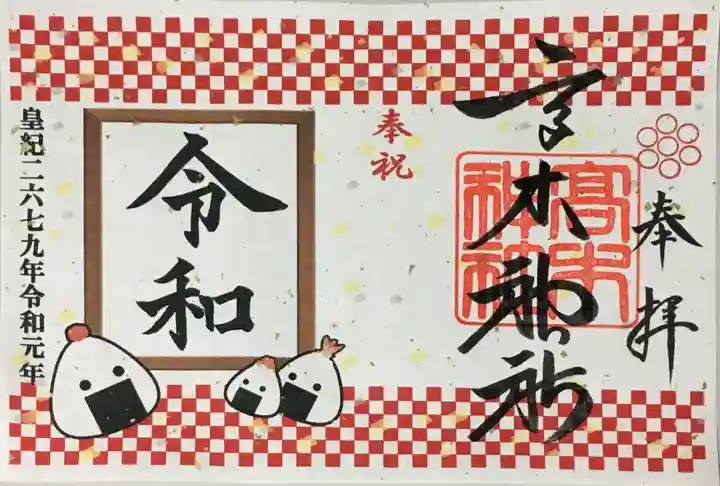 奉拝
高木神社
髙木
神社
奉祝
令和
皇紀二六七九年令和元年